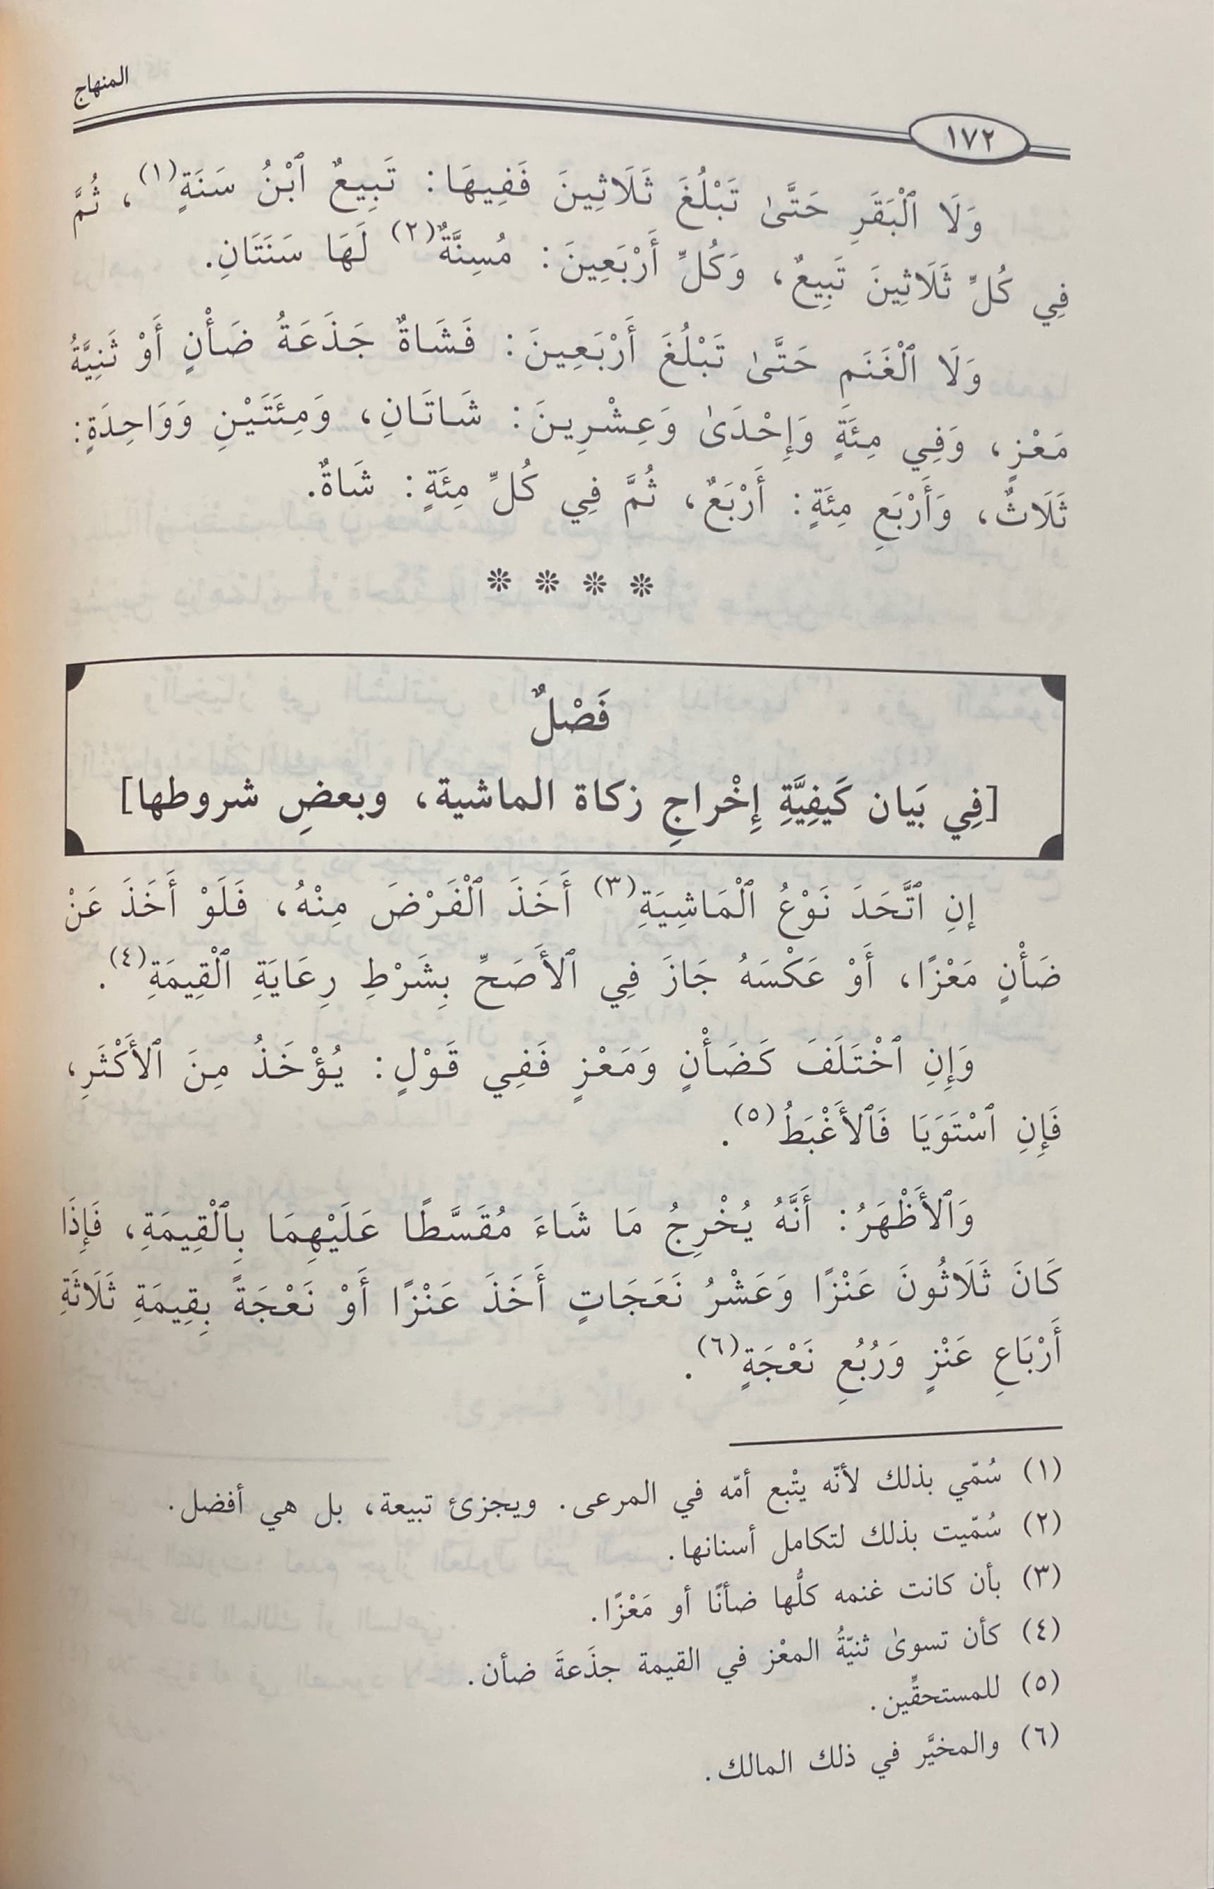 المنهاج
١٧٢
وَلَا ٱلْبَقَرِ حَتَّىٰ تَبْلُغَ ثَلَاثِينَ فَفِيهَا: تَبِيعٌ ٱبْنُ سَنَةٍ(١)، ثُمَّ
فِي كُلِّ ثَلَاثِينَ تَبِيعٌ، وَكُلِّ أَرْبَعِينَ: مُسِنَّةٌ(٢) لَهَا سَنَتَانِ.
وَلَا ٱلْغَنَمِ حَتَّىٰ تَبْلُغَ أَرْبَعِينَ: فَشَاةٌ جَذَعَةُ ضَأْنٍ أَوْ ثَنِيَّةُ
مَعْزٍ، وَفِي مِئَةٍ وَإِحْدَىٰ وَعِشْرِينَ: شَاتَانِ، وَمِئَتَيْنِ وَوَاحِدَةٍ:
ثَلَاثٌ، وَأَرْبَعِ مِئَةٍ: أَرْبَعٌ، ثُمَّ فِي كُلِّ مِئَةٍ: شَاةٌ.
* * * *
فَصْلٌ
[فِي بَيان كَيفِيَّةِ إِخْراجِ زكاة الماشية، وبعضِ شروطها]
إنِ ٱتَّحَدَ نَوْعُ ٱلْمَاشِيَةِ(٣) أَخَذَ ٱلْفَرْضَ مِنْهُ، فَلَوْ أَخَذَ عَنْ
ضَأْنٍ مَعْزًا، أَوْ عَكْسَهُ جَازَ فِي ٱلأَصَحِّ بِشَرْطِ رِعَايَةِ ٱلْقِيمَةِ(٤).
وَإِنِ ٱخْتَلَفَ كَضَأْنٍ وَمَعْزٍ فَفِي قَوْلٍ: يُؤْخَذُ مِنَ ٱلأَكْثَرِ،
فَإِنِ ٱسْتَوَيَا فَٱلأَغْبَطُ(٥).
وَٱلأَظْهَرُ: أَنَّهُ يُخْرِجُ مَا شَاءَ مُقَسَّطًا عَلَيْهِمَا بِٱلْقِيمَةِ، فَإِذَا
كَانَ ثَلَاثُونَ عَنْزًا وَعَشْرُ نَعَجَاتٍ أَخَذَ عَنْزًا أَوْ نَعْجَةً بِقِيمَةِ ثَلَاثَةِ
أَرْبَاعِ عَنْزٍ وَرُبُعِ نَعْجَةٍ(٦).
(١) سُمّي بذلك لأنّه يتْبع أمّه في المرعى. ويجزئ تبيعة، بل هي أفضل.
(٢) سُمّيت بذلك لتكامل أسنانها.
(٣) بأن كانت غنمه كلُّها ضأنًا أو مَعْزًا.
(٤) كأن تسوىٰ ثنيّةُ المعْز في القيمة جذَعةَ ضأن.
(٥) للمستحقِّين.
(٦) والمخيَّر في ذلك المالك.